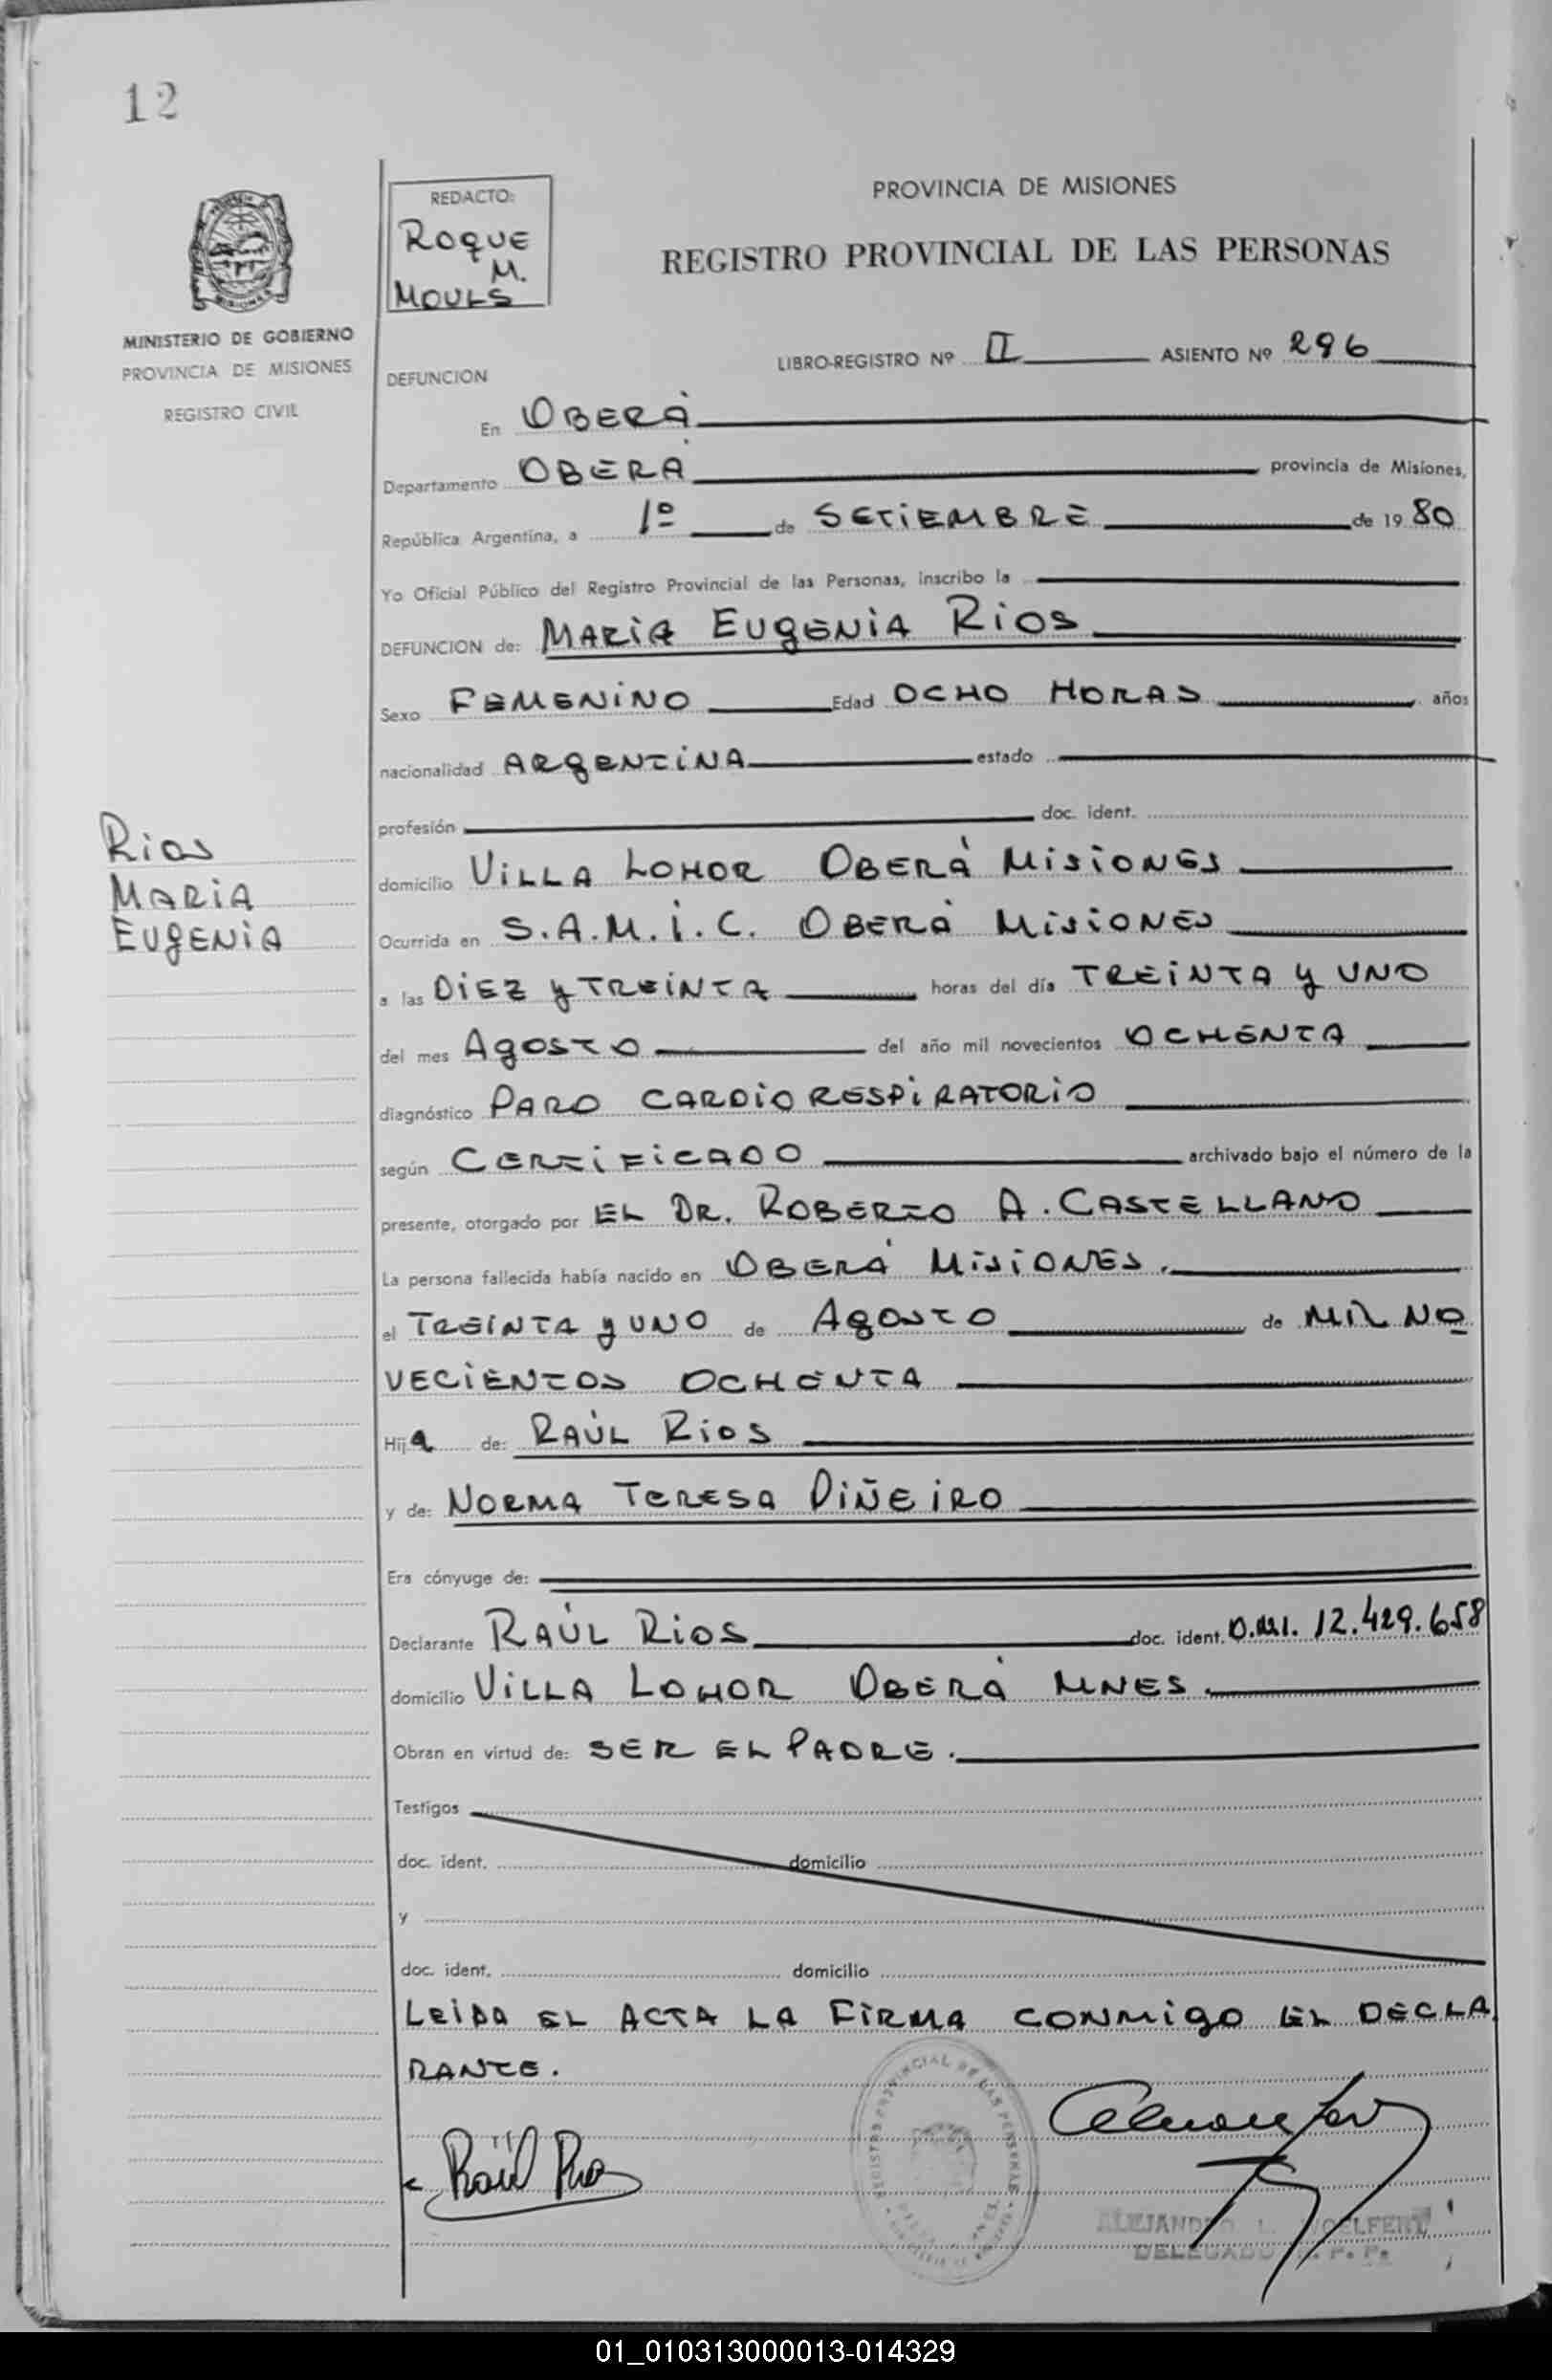 12
REDACTO:
ROQUE
M.
MOULS
PROVINCIA DE MISIONES
REGISTRO PROVINCIAL DE LAS PERSONAS
MINISTERIO DE GOBIERNO
PROVINCIA DE MISIONES
REGISTRO CIVIL
LIBRO-REGISTRO Nº II ASIENTO Nº 296
DEFUNCION
En OBERÁ
Departamento OBERÁ provincia de Misiones,
República Argentina, a 1º de SETIEMBRE de 1980
Yo Oficial Público del Registro Provincial de las Personas, inscribo la
DEFUNCION de: MARIA EUGENIA RIOS
Sexo FEMENINO Edad OCHO HORAS años
nacionalidad ARGENTINA estado
profesión doc. ident.
Rios
MARIA
EUGENIA
domicilio VILLA LOHOR OBERÁ MISIONES
Ocurrida en S.A.M.I.C. OBERÁ MISIONES
a las DIEZ y TREINTA horas del día TREINTA y UNO
del mes AGOSTO del año mil novecientos OCHENTA
diagnóstico PARO CARDIO RESPIRATORIO
según CERTIFICADO archivado bajo el número de la
presente, otorgado por EL DR. ROBERTO A. CASTELLANO
La persona fallecida había nacido en OBERÁ MISIONES.
el TREINTA y UNO de AGOSTO de MIL NO
VECIENTOS OCHENTA
Hija de: RAÚL RIOS
y de: NORMA TERESA PIÑEIRO
Era cónyuge de:
Declarante RAÚL RIOS doc. ident. D.N.I. 12.429.658
domicilio VILLA LOHOR OBERÁ MNES.
Obran en virtud de: SER EL PADRE.
Testigos
doc. ident. domicilio
y
doc. ident. domicilio
LEIDA EL ACTA LA FIRMA CONMIGO EL DECLA
RANTE.
Raúl Rios
REGISTRO PROVINCIAL DE LAS PERSONAS
ALEJANDRO L. WOELFERT
DELEGADO R. P. P.
01_010313000013-014329